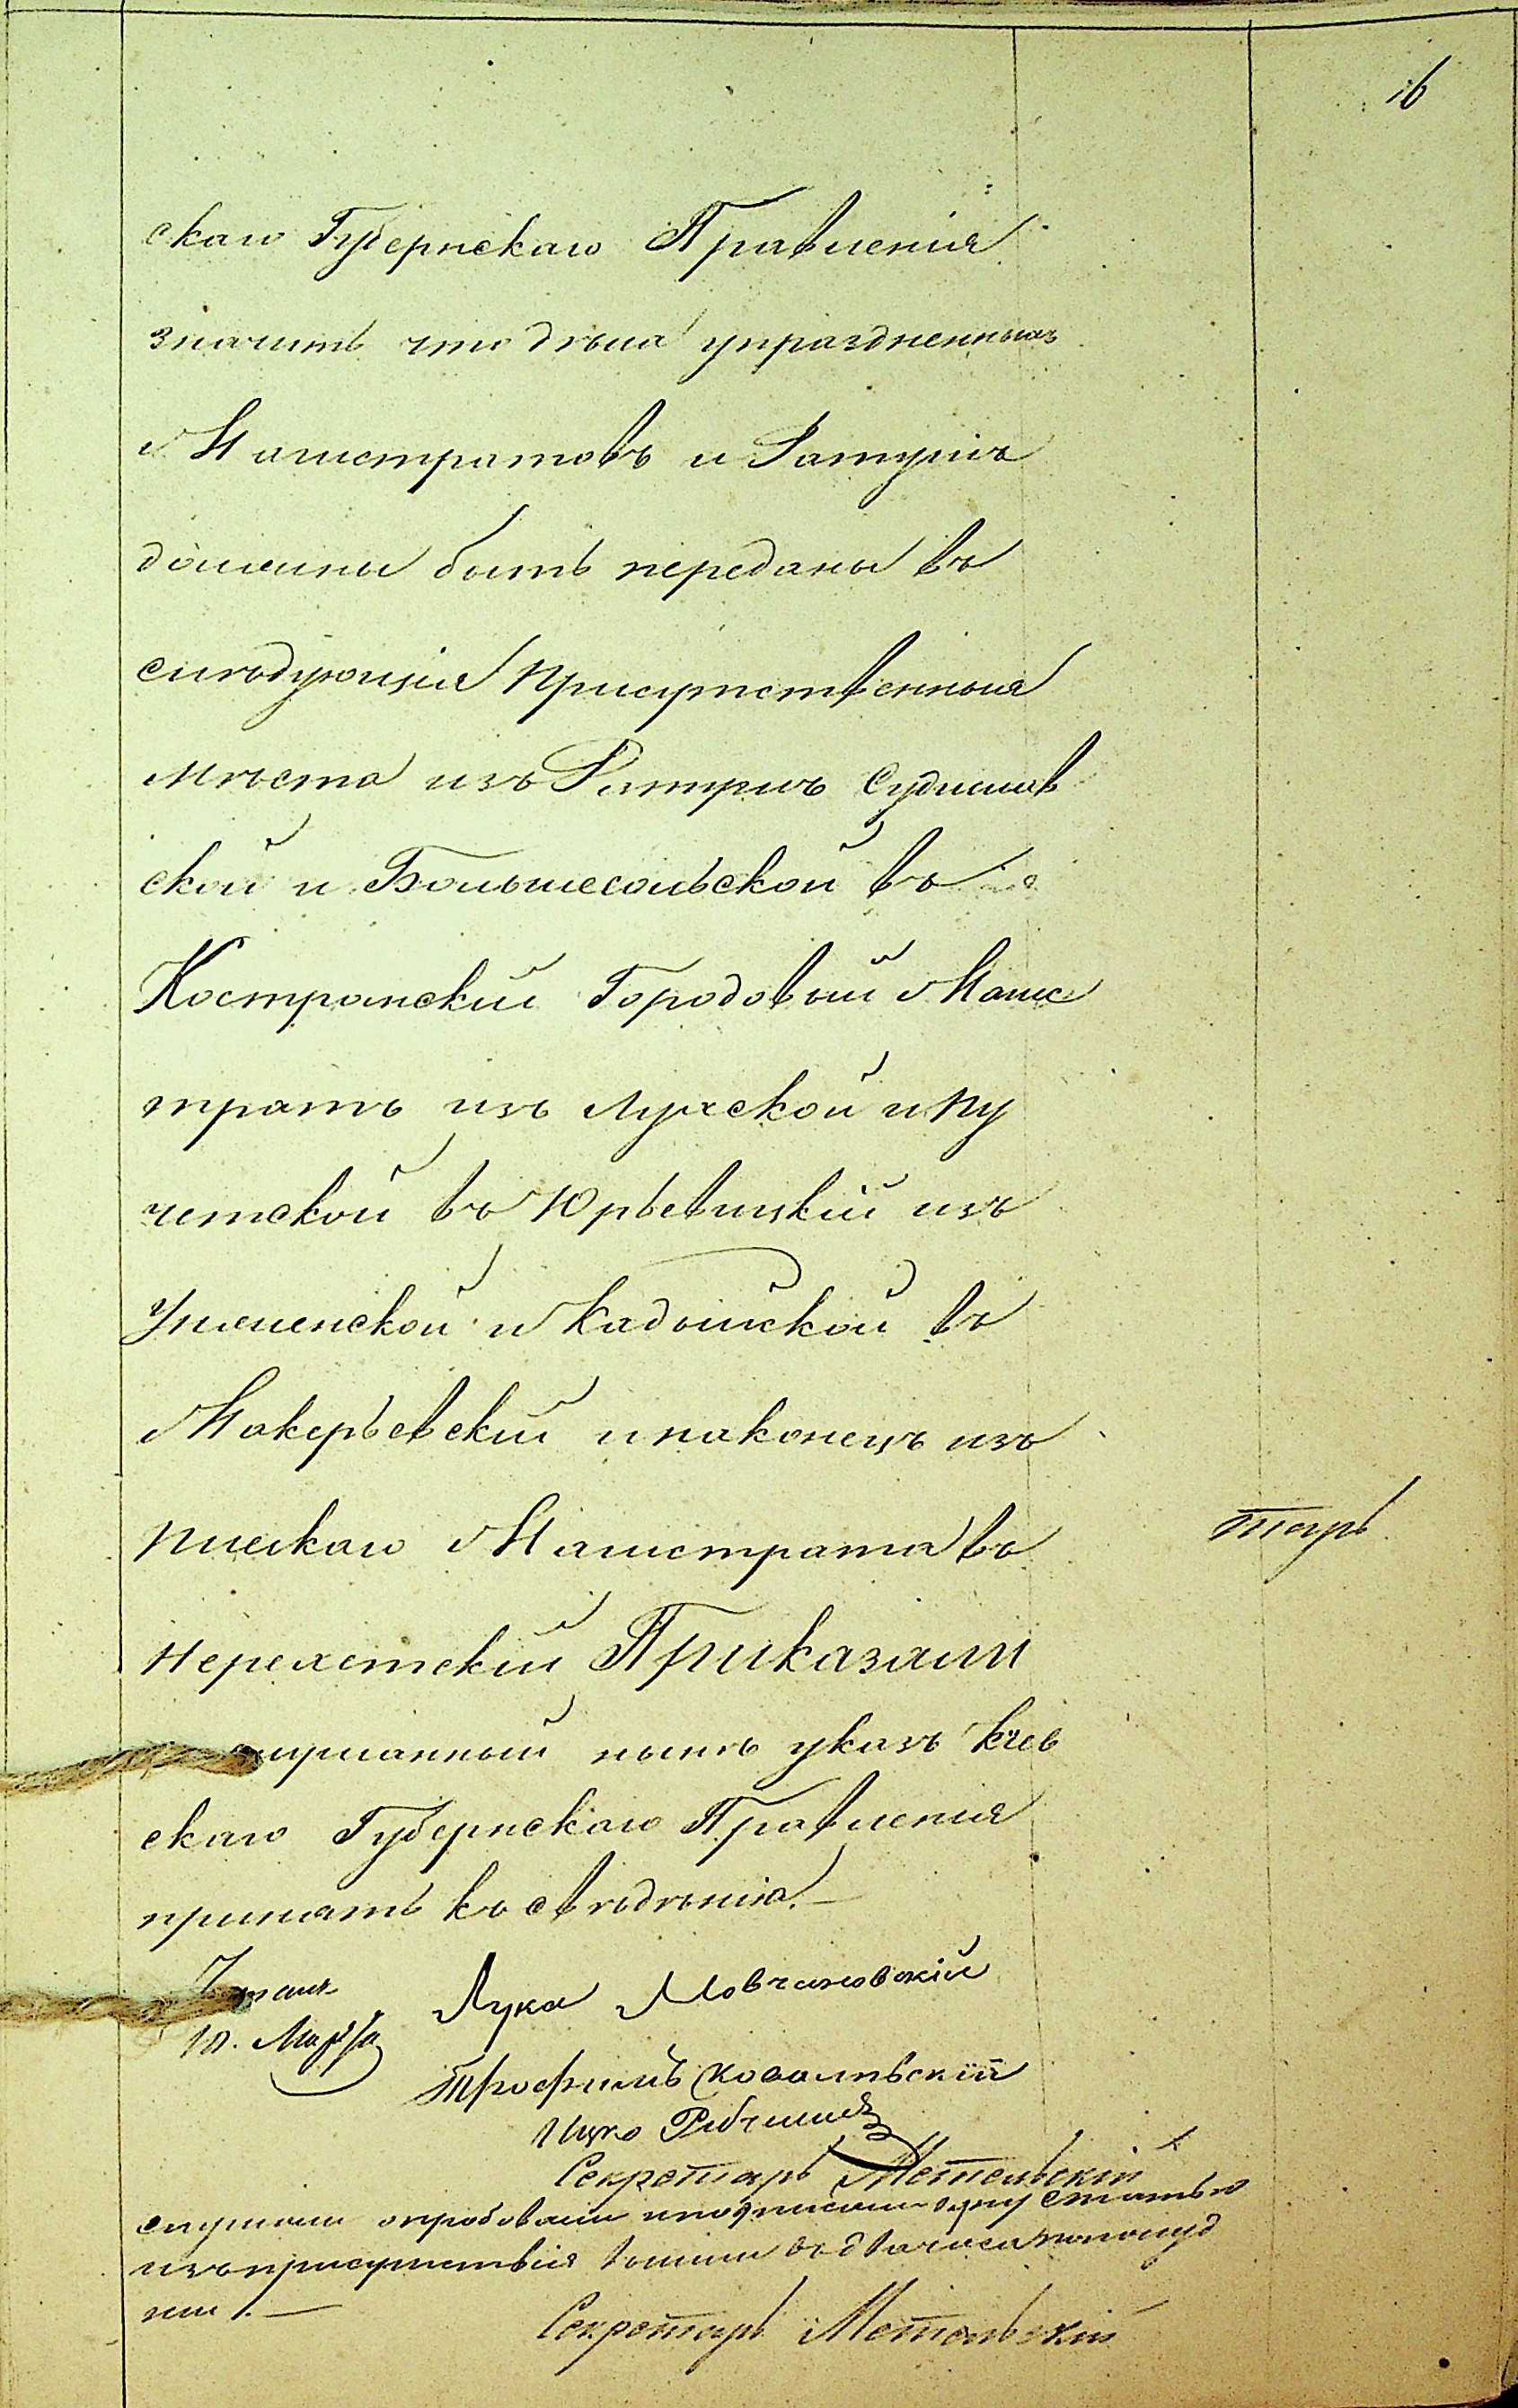 16
скаго Губернскаго Правленія
значитъ что дѣла упраздненныхъ
Магистратовъ и Ратушъ
должны быть переданы въ
слѣдующія присутственныя
мѣста изъ Ратушъ Судислав
ской и Большесольской въ
Костромскій Городовый Магис
тратъ изъ Лухской и Пу
чежской въ Юрьевицкій изъ
Унженской и Кадыйской въ
Макарьевскій и наконецъ изъ
Плескаго Магистрата въ
Нерехетскій Приказали
нынѣ указъ Кіев
скаго Губернскаго Правленія
принять къ свѣдѣнію.
тарь
Читалъ
10. Марта
Лука Мовчановскій
Трофимъ Ковальскій
Ицко
Секретарь Метельскій
слушали опробовали и подписали одну статью
изъ присутствія вышли въ два часа пополуд
ни.
Секретарь Метельскій